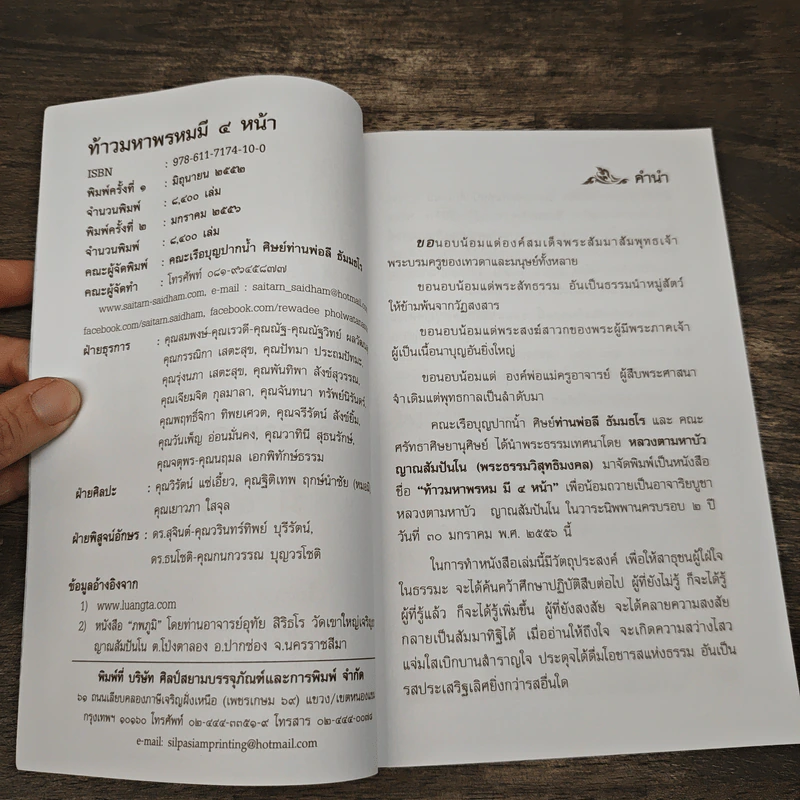 ท้าวมหาพรหมมี ๔ หน้า
ISBN : 978-611-7174-10-0
พิมพ์ครั้งที่ ๑ : มิถุนายน ๒๕๕๒
จำนวนพิมพ์ : ๘,๔๐๐ เล่ม
พิมพ์ครั้งที่ ๒ : มกราคม ๒๕๕๖
จำนวนพิมพ์ : ๘,๔๐๐ เล่ม
คณะผู้จัดพิมพ์ : คณะเรือบุญปากน้ำ ศิษย์ท่านพ่อลี ธัมมธโร
คณะผู้จัดทำ : โทรศัพท์ ๐๘๑-๙๖๔๕๘๗๗
www.saitarn-saidham.com, e-mail : saitarn_saidham@hotmail.com
facebook.com/saitarn.saidham, facebook.com/rewadee pholwatana
ฝ่ายธุรการ : คุณสมพงษ์-คุณเรวดี-คุณณัฐ-คุณณัฐวิทย์
คุณกรรณิกา เสตะสุข, คุณปัทมา ประถมปัทมะ,
คุณรุ่งนภา เสตะสุข, คุณพันทิพา สังข์สุวรรณ,
คุณเจียมจิต กุลมาลา, คุณจันทนา ทรัพย์นิรันดร์,
คุณพฤทธิ์จิกา ทิพยเศวต, คุณจรีรัตน์ สังข์ยิ้ม,
คุณวันเพ็ญ อ่อนมั่นคง, คุณวาทินี สุธนรักษ์,
คุณจตุพร-คุณนฤมล เอกพิทักษ์ธรรม
ฝ่ายศิลปะ : คุณวิรัตน์ แซ่เอี้ยว, คุณฐิติเทพ ฤกษ์นำชัย
คุณเยาวภา ใสจุล
ฝ่ายพิสูจน์อักษร : ดร.สุจินต์-คุณวรินทร์ทิพย์ บุรีรัตน์,
ดร.ธนโชติ-คุณกนกวรรณ บุญวรโชติ
ข้อมูลอ้างอิงจาก
1) www.luangta.com
2) หนังสือ "ภพภูมิ" โดยท่านอาจารย์อุทัย สิริธโร วัดเขาใหญ่เจริญ
ญาณสัมปันโน ต.โป่งตาลอง อ.ปากช่อง จ.นครราชสีมา
พิมพ์ที่ บริษัท ศิลป์สยามบรรจุภัณฑ์และการพิมพ์ จำกัด
๖๑ ถนนเลียบคลองภาษีเจริญฝั่งเหนือ (เพชรเกษม ๖๙) แขวง/เขตหนองแขม
กรุงเทพฯ ๑๐๑๖๐ โทรศัพท์ ๐๒-๔๔๔-๓๓๕๑-๙ โทรสาร ๐๒-๔๔๔-๐๐๗๘
e-mail: silpasiamprinting@hotmail.com
คำนำ
ขอนอบน้อมแด่องค์สมเด็จพระสัมมาสัมพุทธเจ้า
พระบรมครูของเทวดาและมนุษย์ทั้งหลาย
ขอนอบน้อมแด่พระสัทธรรม อันเป็นธรรมนำหมู่สัตว์
ให้ข้ามพ้นจากวัฏสงสาร
ขอนอบน้อมแด่พระสงฆ์สาวกของพระผู้มีพระภาคเจ้า
ผู้เป็นเนื้อนาบุญอันยิ่งใหญ่
ขอนอบน้อมแด่ องค์พ่อแม่ครูอาจารย์ ผู้สืบพระศาสนา
จำเดิมแต่พุทธกาลเป็นลำดับมา
คณะเรือบุญปากน้ำ ศิษย์ท่านพ่อลี ธัมมธโร และ คณะ
ศรัทธาศิษยานุศิษย์ ได้นำพระธรรมเทศนาโดย หลวงตามหาบัว
ญาณสัมปันโน (พระธรรมวิสุทธิมงคล) มาจัดพิมพ์เป็นหนังสือ
ชื่อ "ท้าวมหาพรหม มี ๔ หน้า" เพื่อน้อมถวายเป็นอาจาริยบูชา
หลวงตามหาบัว ญาณสัมปันโน ในวาระนิพพานครบรอบ ๒ ปี
วันที่ ๓๐ มกราคม พ.ศ. ๒๕๕๖ นี้
ในการทำหนังสือเล่มนี้มีวัตถุประสงค์ เพื่อให้สาธุชนผู้ใฝ่ใจ
ในธรรมะ จะได้ค้นคว้าศึกษาปฏิบัติสืบต่อไป ผู้ที่ยังไม่รู้ ก็จะได้รู้
ผู้ที่รู้แล้ว ก็จะได้รู้เพิ่มขึ้น ผู้ที่ยังสงสัย จะได้คลายความสงสัย
กลายเป็นสัมมาทิฐิได้ เมื่ออ่านให้ถึงใจ จะเกิดความสว่างไสว
แจ่มใสเบิกบานสำราญใจ ประดุจได้ดื่มโอชารสแห่งธรรม อันเป็น
รสประเสริฐเลิศยิ่งกว่ารสอื่นใด